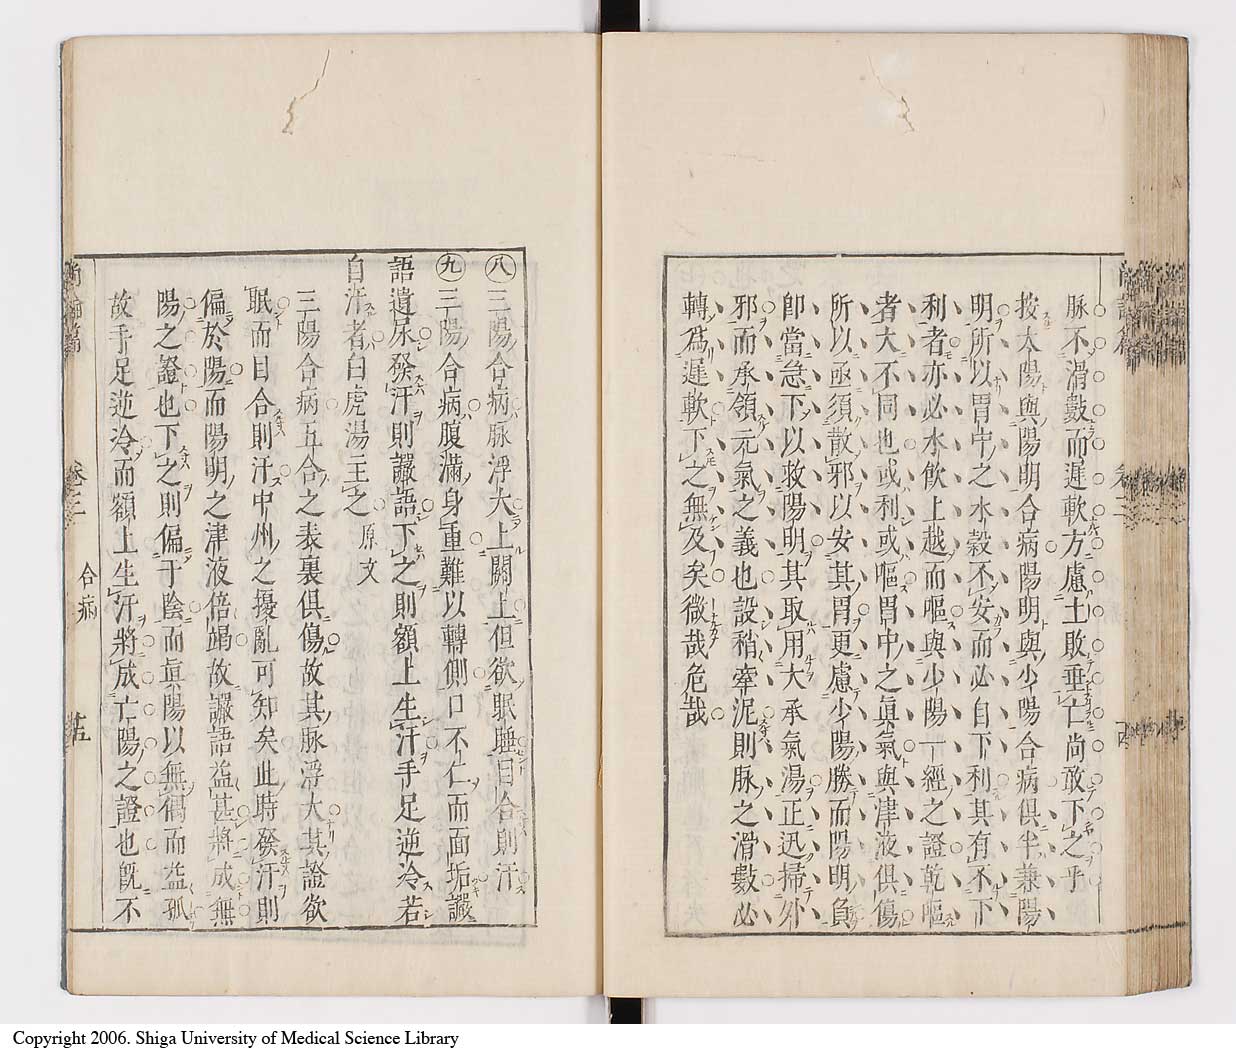 脉不滑數而遲軟方慮土敗垂亡尚敢下之乎
按太陽與陽明合病陽明與少陽合病俱半兼陽
明所以胃中之水穀不安而必自下利其有不下
利者亦必水飲上越而嘔與少陽一經之證乾嘔
者大不同也或利或嘔胃中之眞氣與津液俱傷
所以亟須散邪以安其胃更慮少陽勝而陽明負
卽當急下以救陽明其取用大承氣湯正迅掃外
邪而承領元氣之義也設稍牽泥則脉之滑數必
轉爲遲軟下之無及矣微哉危哉
㊇三陽合病脉浮大上關上但欲眠睡目合則汗
㊈三陽合病腹滿身重難以轉側口不仁而面垢讝
語遺尿發汗則讝語下之則額上生汗手足逆冷若
自汗者白虎湯主之 原文
三陽合病五合之表裏俱傷故其脉浮大其證欲
眠而目合則汗中州之擾亂可知矣此時發汗則
偏於陽而陽明之津液倍竭故讝語益甚將成無
陽之證也下之則偏于陰而眞陽以無偶而益孤
故手足逆冷而額上生汗將成亡陽之證也旣不
合病
Copyright 2006. Shiga University of Medical Science Library